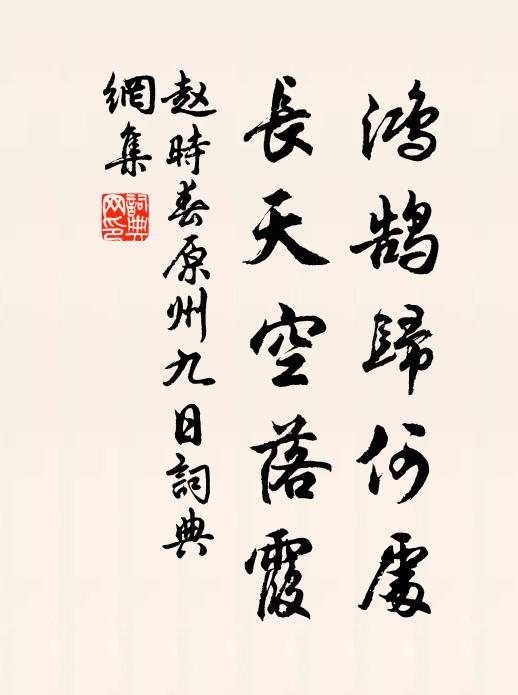 鴻鹄歸何處
長天空落霞
赵時春原州九日詞典
網集
詞典
网印